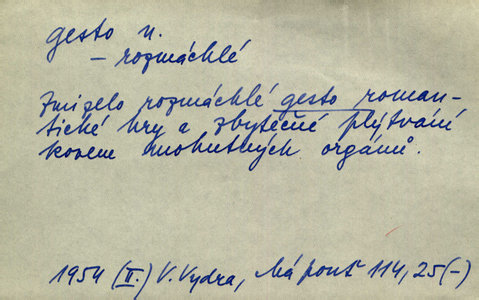 gesto n.
– rozmáchlé
Zmizelo rozmáchlé gesto roman-
tické hry a zbytečné plýtvání
kovem mohutných orgánů.
1954 (II.) V. Vydra, Má pouť 114, 25 (-)